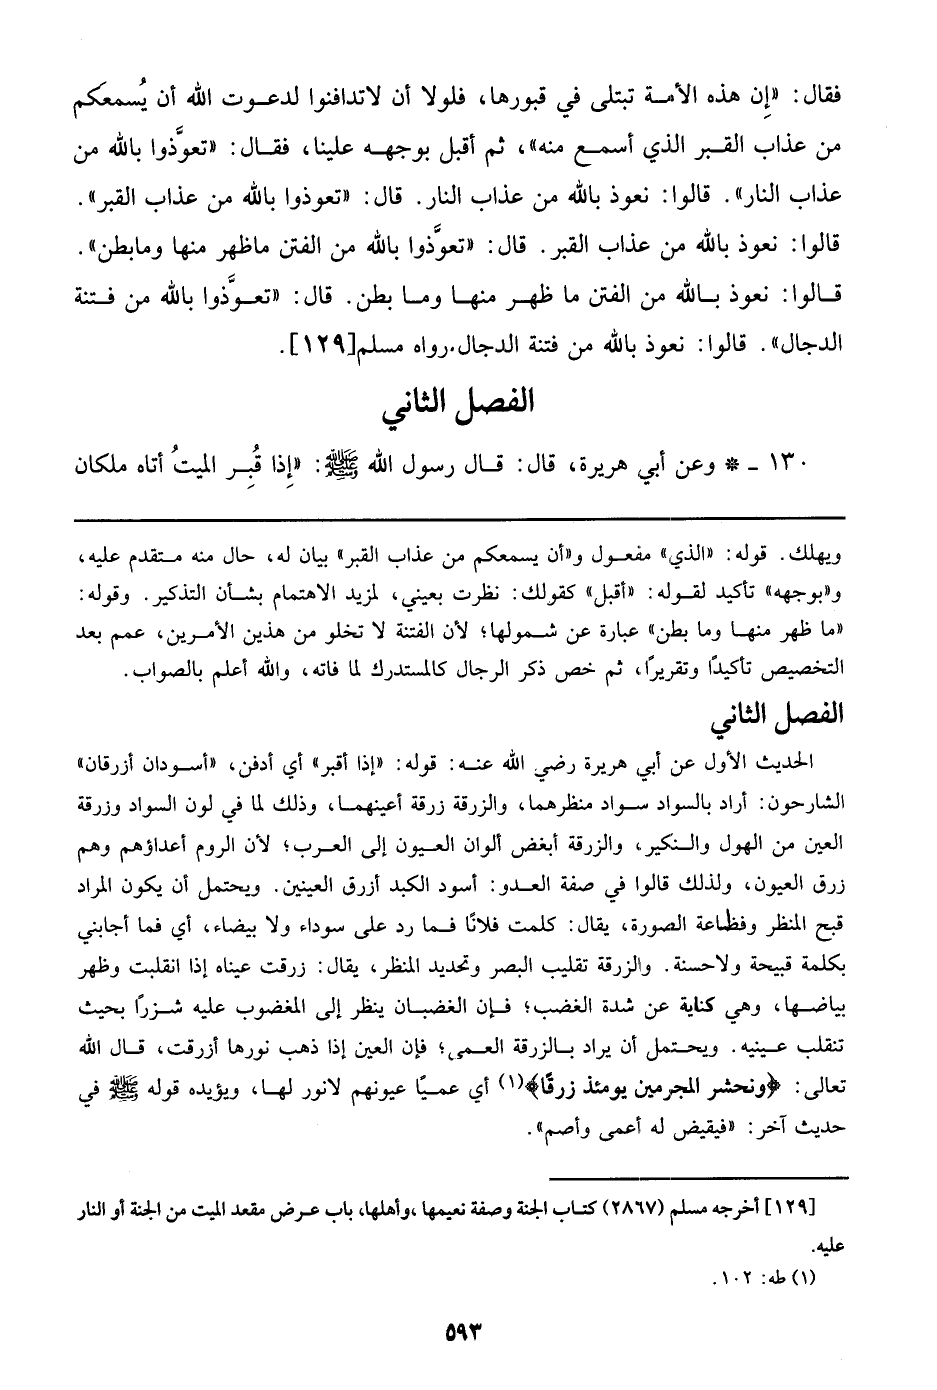 فقال: «إِن هذه الأمة تبتلى في قبورها، فلولا أن لاتدافنوا لدعوت الله أن يُسمعكم
من عذاب القبر الذي أسمع منه»، ثم أقبل بوجهه علينا، فقال: «تعوَّذوا بالله من
عذاب النار». قالوا: نعوذ بالله من عذاب النار. قال: «تعوذوا بالله من عذاب القبر».
قالوا: نعوذ بالله من عذاب القبر. قال: «تعوَّذوا بالله من الفتن ماظهر منها ومابطن».
قالوا: نعوذ بالله من الفتن ما ظهر منها وما بطن. قال: «تعوَّذوا بالله من فتنة
الدجال». قالوا: نعوذ بالله من فتنة الدجال.رواه مسلم[١٢٩].
الفصل الثاني
١٣٠ - * وعن أبي هريرة، قال: قال رسول الله ﷺ: «إِذا قُبِر الميتُ أتاه ملكان
ويهلك. قوله: «الذي» مفعول و«أن يسمعكم من عذاب القبر» بيان له، حال منه متقدم عليه،
و«بوجهه» تأكيد لقوله: «أقبل» كقولك: نظرت بعيني، لمزيد الاهتمام بشأن التذكير. وقوله:
«ما ظهر منها وما بطن» عبارة عن شمولها؛ لأن الفتنة لا تخلو من هذين الأمرين، عمم بعد
التخصيص تأكيدًا وتقريرًا، ثم خص ذكر الرجال كالمستدرك لما فاته، والله أعلم بالصواب.
الفصل الثاني
الحديث الأول عن أبي هريرة رضي الله عنه: قوله: «إذا أقبر» أي أدفن، «أسودان أزرقان»
الشارحون: أراد بالسواد سواد منظرهما، والزرقة زرقة أعينهما، وذلك لما في لون السواد وزرقة
العين من الهول والنكير، والزرقة أبغض ألوان العيون إلى العرب؛ لأن الروم أعداؤهم وهم
زرق العيون، ولذلك قالوا في صفة العدو: أسود الكبد أزرق العينين. ويحتمل أن يكون المراد
قبح المنظر وفظاعة الصورة، يقال: كلمت فلانًا فما رد على سوداء ولا بيضاء، أي فما أجابني
بكلمة قبيحة ولاحسنة. والزرقة تقليب البصر وتحديد المنظر، يقال: زرقت عيناه إذا انقلبت وظهر
بياضها، وهي كناية عن شدة الغضب؛ فإن الغضبان ينظر إلى المغضوب عليه شزرًا بحيث
تنقلب عينيه. ويحتمل أن يراد بالزرقة العمى؛ فإن العين إذا ذهب نورها أزرقت، قال الله
تعالى: ﴿ونحشر المجرمين يومئذ زرقًا﴾(١) أي عميًا عيونهم لانور لها، ويؤيده قوله ﷺ في
حديث آخر: «فيقيض له أعمى وأصم».
[١٢٩] أخرجه مسلم (٢٨٦٧) كتاب الجنة وصفة نعيمها ،وأهلها، باب عرض مقعد الميت من الجنة أو النار
عليه.
(١) طه: ١٠٢.
٥٩٣